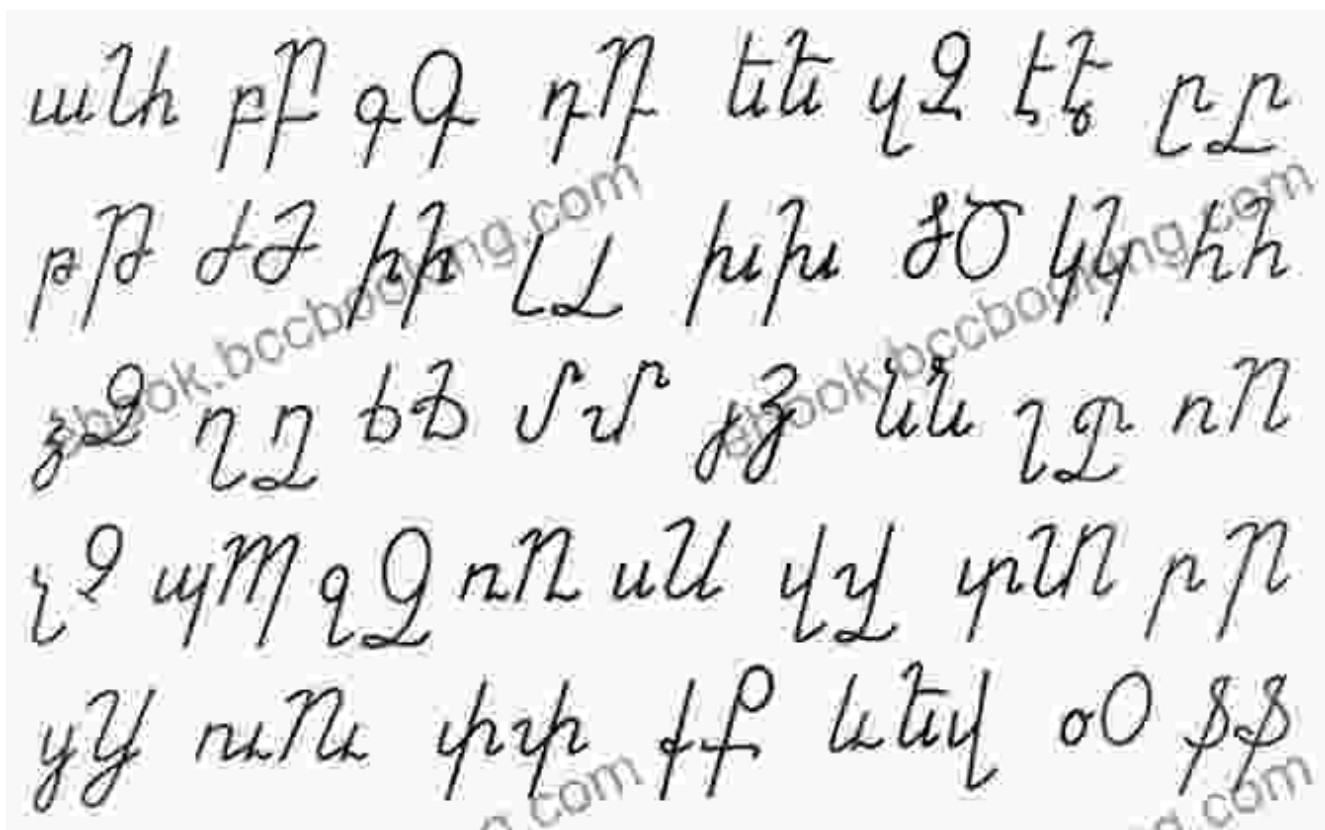 աԱ բԲ գԳ դԴ եԵ զԶ էԷ ըԸ
թԹ ժԺ իԻ լԼ խԽ ծԾ կԿ հՀ
ձՁ ղՂ ճՃ մՄ յՅ նՆ շՇ ոՈ
չՉ պՊ ջՋ ռՌ սՍ վՎ տՏ րՐ
ցՑ ուՈւ փՓ քՔ ևԵվ օՕ ֆՖ
ebook.bccbooking.com
ebook.bccbooking.com